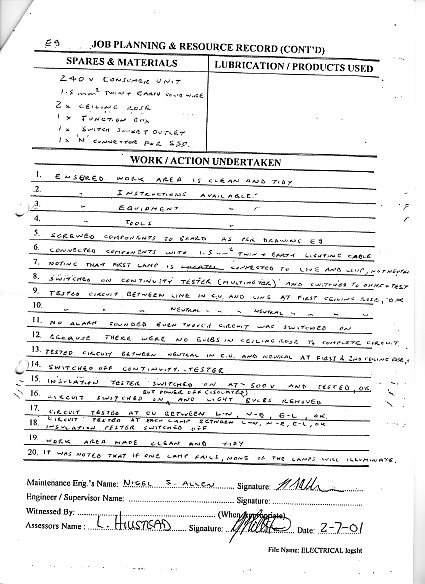 E9
JOB PLANNING & RESOURCE RECORD (CONT'D)
SPARES & MATERIALS
LUBRICATION / PRODUCTS USED
240 V CONSUMER UNIT
1.5 mm² TWIN + EARTH SOLID WIRE
2 x CEILING ROSE
1 x JUNCTION BOX
1 x SWITCH SOCKET OUTLET
1 x 'N' CONNECTOR FOR SSO.
WORK / ACTION UNDERTAKEN
1. ENSURED WORK AREA IS CLEAN AND TIDY
2. " INSTRUCTIONS AVAILABLE
3. " EQUIPMENT " "
4. " TOOLS "
5. SCREWED COMPONENTS TO BOARD AS PER DRAWING E9
6. CONNECTED COMPONENTS WITH 1.5 mm² TWIN + EARTH LIGHTING CABLE
7. NOTING THAT FIRST LAMP IS CONNECTED TO LIVE AND LOOP, NOT NEUTRAL
8. SWITCHED ON CONTINUITY TESTER (MULTIMETER) AND SWITCHED TO OHMS + TEST
9. TESTED CIRCUIT BETWEEN LINE IN C.U. AND LINE AT FIRST CEILING ROSE, OK
10. " " " NEUTRAL " " " NEUTRAL " " " "
11. NO ALARM SOUNDED EVEN THOUGH CIRCUIT WAS SWITCHED ON
12. BECAUSE THERE WERE NO BULBS IN CEILING ROSE TO COMPLETE CIRCUIT.
13. TESTED CIRCUIT BETWEEN NEUTRAL IN C.U. AND NEUTRAL AT FIRST & 2ND CEILING ROSE,
14. SWITCHED OFF CONTINUITY TESTER
15. INSULATION TESTER SWITCHED ON AT 500 V AND TESTED, OK.
BUT POWER OFF (ISOLATED)
16. CIRCUIT SWITCHED ON, AND LIGHT BULBS REMOVED
17. CIRCUIT TESTED AT CU BETWEEN L-N, N-E, E-L, OK
CIRCUIT TESTED AT EACH LAMP BETWEEN L-N, N-E, E-L, OK
18. INSULATION TESTER SWITCHED OFF
19. WORK AREA MADE CLEAN AND TIDY
20. IT WAS NOTED THAT IF ONE LAMP FAILS, NONE OF THE LAMPS WILL ILLUMINATE.
Maintenance Eng.'s Name: NIGEL S. ALLEN Signature:
Engineer / Supervisor Name: Signature:
Witnessed By: (When Appropriate)
Assessors Name: L. HILLSTEAD Signature: Date: 2-7-01
File Name: ELECTRICAL logsht